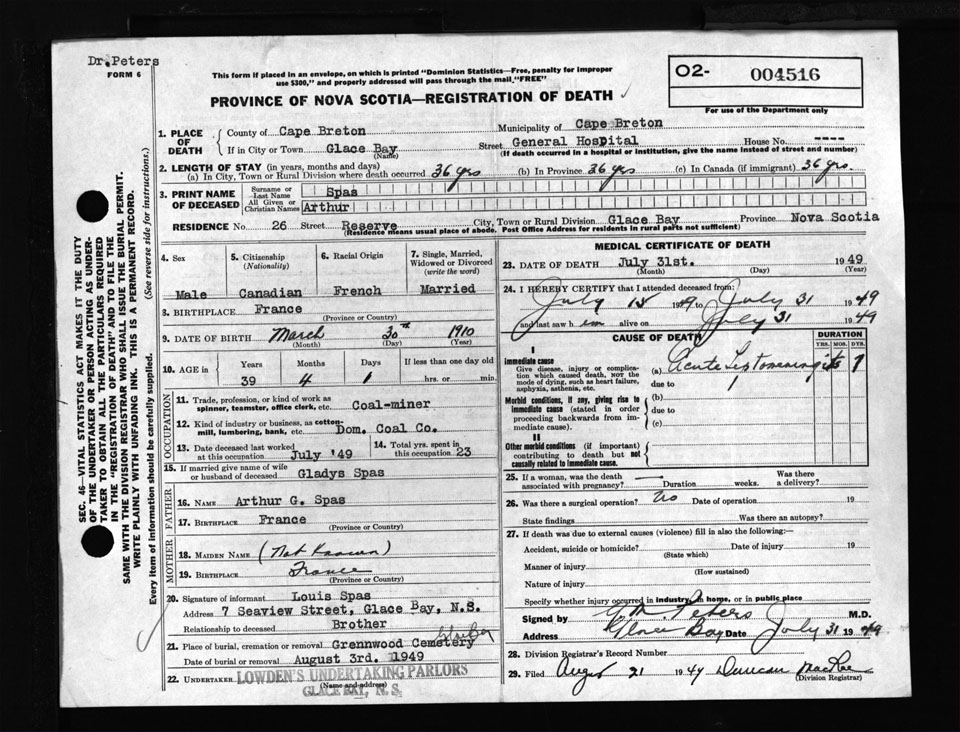 Dr. Peters
FORM 6
This form if placed in an envelope, on which is printed "Dominion Statistics—Free, penalty for improper
use $300," and properly addressed will pass through the mail, "FREE"
PROVINCE OF NOVA SCOTIA—REGISTRATION OF DEATH ✓
02- 004516
For use of the Department only
SEC. 46—VITAL STATISTICS ACT MAKES IT THE DUTY
OF THE UNDERTAKER OR PERSON ACTING AS UNDER-
TAKER TO OBTAIN ALL THE PARTICULARS REQUIRED
IN THE "REGISTRATION OF DEATH" AND TO FILE THE
SAME WITH THE DIVISION REGISTRAR WHO SHALL ISSUE THE BURIAL PERMIT.
WRITE PLAINLY WITH UNFADING INK. THIS IS A PERMANENT RECORD.
Every item of information should be carefully supplied. (See reverse side for instructions.)
1. PLACE OF DEATH
County of Cape Breton Municipality of Cape Breton
If in City or Town Glace Bay Street General Hospital House No. ----
(Name) (If death occurred in a hospital or institution, give the name instead of street and number)
2. LENGTH OF STAY (in years, months and days)
(a) In City, Town or Rural Division where death occurred 36 yrs (b) In Province 36 yrs (c) In Canada (if immigrant) 36 yrs.
3. PRINT NAME OF DECEASED
Surname or Last Name Spas
All Given or Christian Names Arthur
RESIDENCE No. 26 Street Reserve City, Town or Rural Division Glace Bay Province Nova Scotia
(Residence means usual place of abode. Post Office Address for residents in rural parts not sufficient)
4. Sex 5. Citizenship (Nationality) 6. Racial Origin 7. Single, Married, Widowed or Divorced (write the word)
Male Canadian French Married
3. BIRTHPLACE France
(Province or Country)
9. DATE OF BIRTH March 30th 1910
(Month) (Day) (Year)
10. AGE in Years Months Days If less than one day old
39 4 1 hrs. or min.
OCCUPATION
11. Trade, profession, or kind of work as
spinner, teamster, office clerk, etc. Coal-miner
12. Kind of industry or business, as cotton-
mill, lumbering, bank, etc. Dom. Coal Co.
13. Date deceased last worked at this occupation July '49 14. Total yrs. spent in this occupation 23
15. If married give name of wife
or husband of deceased Gladys Spas
FATHER
16. NAME Arthur G. Spas
17. BIRTHPLACE France
(Province or Country)
MOTHER
18. MAIDEN NAME (Not Known)
19. BIRTHPLACE France
(Province or Country)
20. Signature of informant Louis Spas
Address 7 Seaview Street, Glace Bay, N.S.
Relationship to deceased Brother
21. Place of burial, cremation or removal Grennwood Cemetery
Date of burial or removal August 3rd. 1949
22. UNDERTAKER LOWDEN'S UNDERTAKING PARLORS
(Name and address)
GLACE BAY, N. S.
MEDICAL CERTIFICATE OF DEATH
23. DATE OF DEATH July 31st. 1949
(Month) (Day) (Year)
24. I HEREBY CERTIFY that I attended deceased from:
July 15 1949 to July 31 1949
and last saw him alive on July 31 1949
CAUSE OF DEATH DURATION
YRS. MOS. DYS.
I
Immediate cause
Give disease, injury or complica-
tion which caused death, NOT the
mode of dying, such as heart failure,
asphyxia, asthenia, etc.
(a) Acute Leptomeningitis
due to
Morbid conditions, if any, giving rise to
immediate cause (stated in order
proceeding backwards from im-
mediate cause).
(b)
due to
(c)
II
Other morbid conditions (if important)
contributing to death but not
causally related to immediate cause.
25. If a woman, was the death
associated with pregnancy? — Duration weeks. Was there a delivery?
26. Was there a surgical operation? No Date of operation 19
State findings Was there an autopsy?
27. If death was due to external causes (violence) fill in also the following:—
Accident, suicide or homicide? Date of injury 19
(State which)
Manner of injury
(How sustained)
Nature of injury
Specify whether injury occurred in industry, in home, or in public place
Signed by Peters M.D.
Address Glace Bay Date July 31 1949
28. Division Registrar's Record Number
29. Filed Aug 21 1949 Duncan MacRae
(Division Registrar)